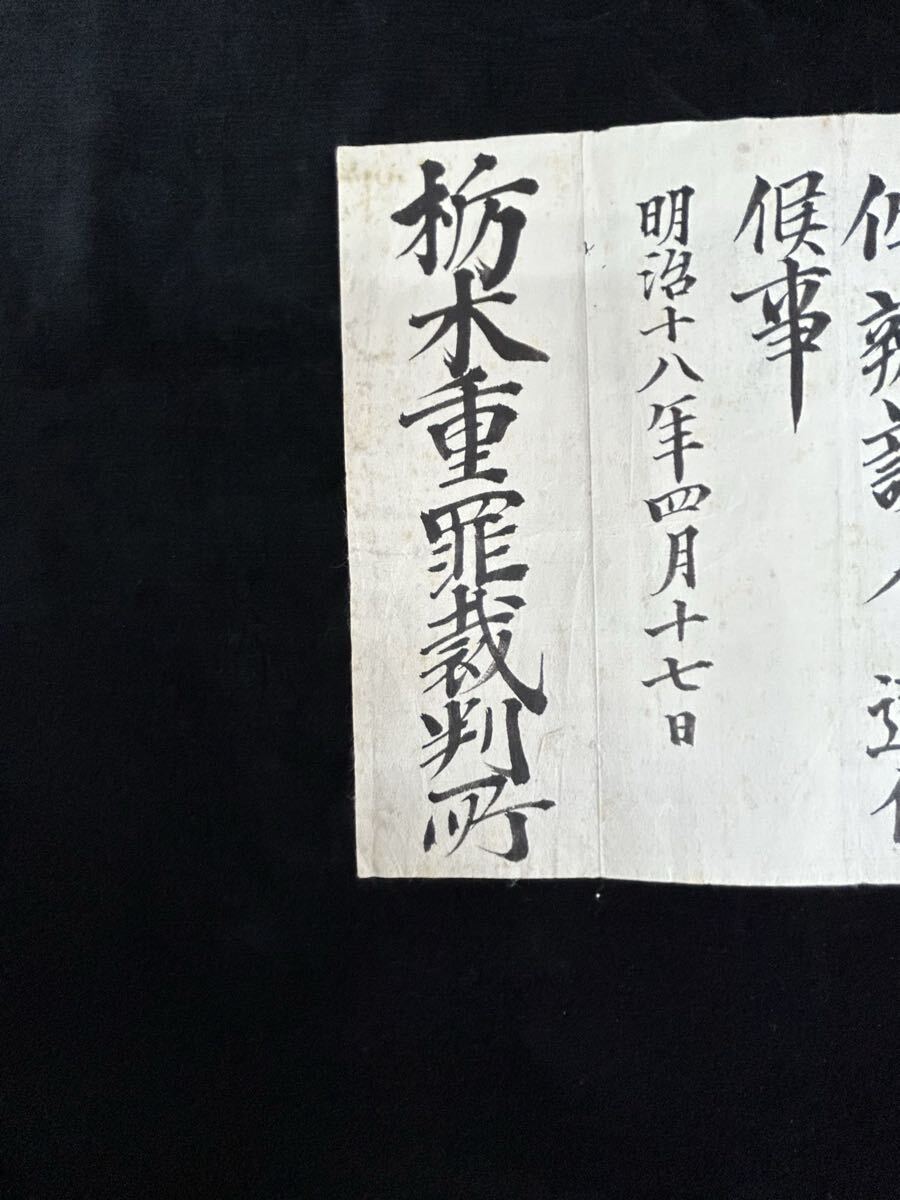 候事
明治十八年四月十七日
栃木重罪裁判所